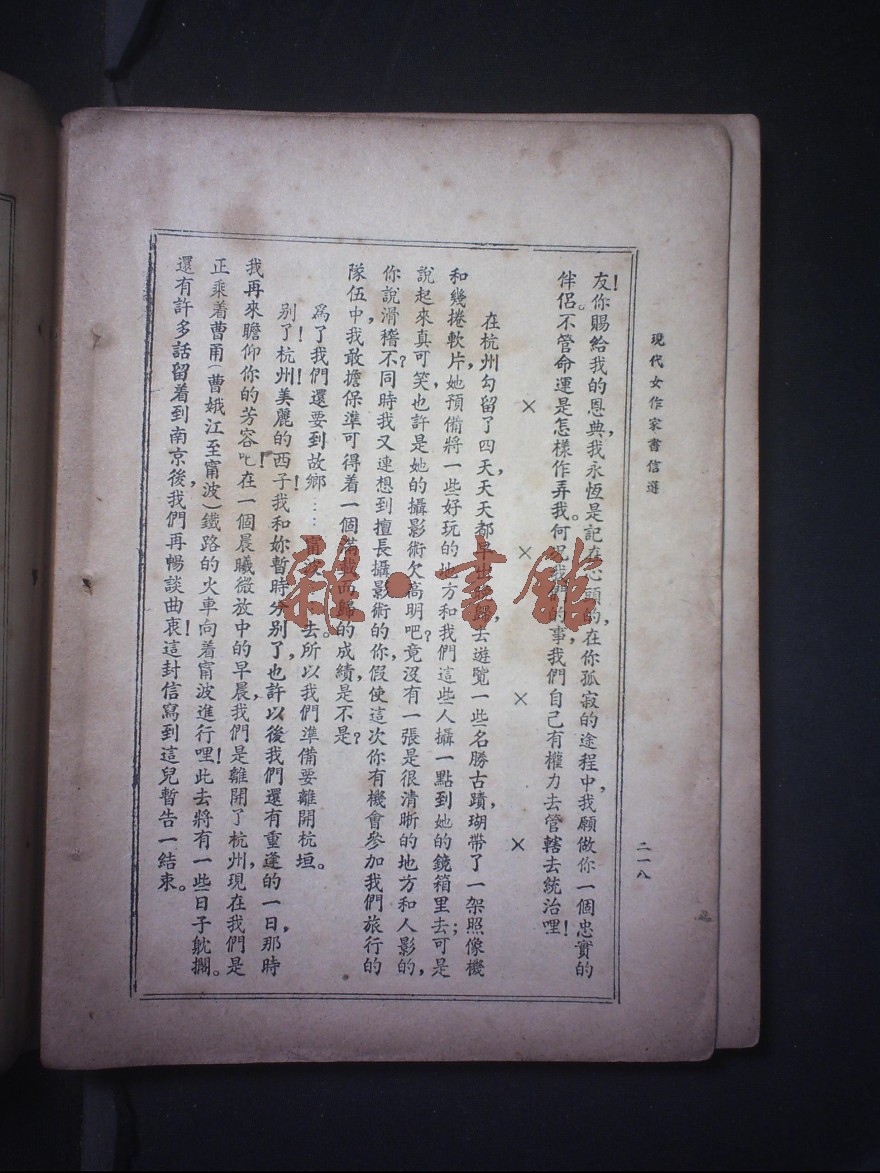 現代女作家書信選
二一八
友！你賜給我的恩典，我永恆是記在心頭的，在你孤寂的途程中，我願做你一個忠實的
伴侶。不管命運是怎樣作弄我。何況我們的事，我們自己有權力去管轄去統治哩！
× × × ×
在杭州勾留了四天，天天都早出晚歸去遊覽一些名勝古蹟，瑚帶了一架照像機
和幾捲軟片，她預備將一些好玩的地方和我們這些人攝一點到她的鏡箱里去；可是
說起來真可笑，也許是她的攝影術欠高明吧？竟沒有一張是很清晰的地方和人影的，
你說滑稽不？同時我又連想到擅長攝影術的你，假使這次你有機會參加我們旅行的
隊伍中，我敢擔保準可得着一個滿載而歸的成績，是不是？
為了我們還要到故鄉……甯波……去。所以我們準備要離開杭垣。
別了！杭州！美麗的西子！我和妳暫時分別了，也許以後我們還有重逢的一日，那時
我再來瞻仰你的芳容吧！在一個晨曦微放中的早晨，我們是離開了杭州，現在我們是
正乘着曹甬（曹娥江至甯波）鐵路的火車向着甯波進行哩！此去將有一些日子躭擱。
還有許多話留着到南京後，我們再暢談曲衷！這封信寫到這兒暫告一結束。
雜·書館